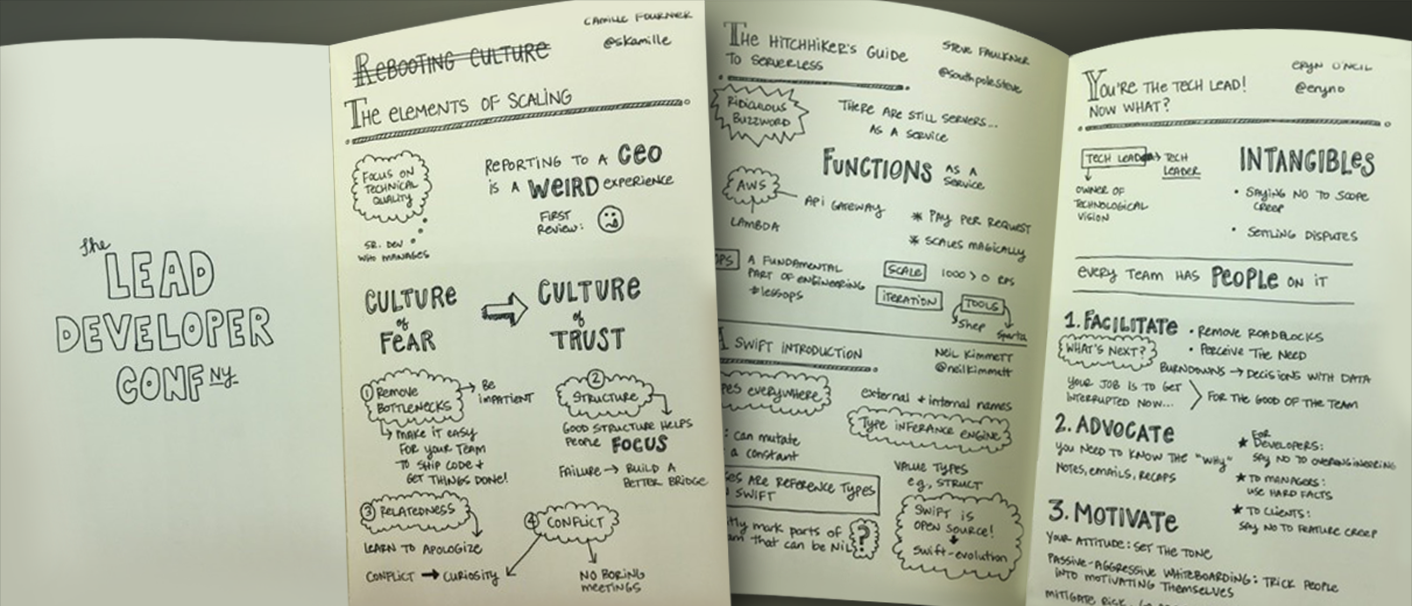 The
LEAD
DEVELOPER
CONF NY.
CAMILLE FOURNIER
@skamille
REBOOTING CULTURE
THE ELEMENTS OF SCALING
FOCUS ON
TECHNICAL
QUALITY
SR. DEV
WHO MANAGES
REPORTING TO A CEO
IS A WEIRD EXPERIENCE
FIRST
REVIEW:
CULTURE
of
FEAR
CULTURE
of
TRUST
① REMOVE
BOTTLENECKS
Be
impatient
MAKE IT EASY
FOR YOUR TEAM
TO SHIP CODE +
GET THINGS DONE!
②
STRUCTURE
GOOD STRUCTURE HELPS
PEOPLE FOCUS
FAILURE → BUILD A
BETTER BRIDGE
③ RELATEDNESS
LEARN TO APOLOGIZE
④ CONFLICT
CONFLICT → CURIOSITY
NO BORING
MEETINGS
THE HITCHHIKER'S GUIDE
TO SERVERLESS
STEVE FAULKNER
@southpolesteve
RIDICULOUS
BUZZWORD
THERE ARE STILL SERVERS...
AS A SERVICE
FUNCTIONS AS A
SERVICE
AWS
API GATEWAY
LAMBDA
* PAY PER REQUEST
* SCALES MAGICALLY
OPS
A FUNDAMENTAL
PART OF ENGINEERING
#lessops
SCALE 1000 > 0 RPS
ITERATION
TOOLS
Shep Sparta
A SWIFT INTRODUCTION
Neil Kimmett
@neilkimmett
PES EVERYWHERE
external + internal names
TYPE INFERANCE ENGINE
: can mutate
a constant
SES ARE REFERENCE TYPES
SWIFT
VALUE TYPES
e.g., STRUCT
tly mark parts of
am that can be NIL
?
SWIFT IS
OPEN SOURCE!
swift-evolution
YOU'RE THE TECH LEAD!
NOW WHAT?
ERYN O'NEIL
@eryno
TECH LEAD → TECH
LEADER
OWNER OF
TECHNOLOGICAL
VISION
INTANGIBLES
• SAYING NO TO SCOPE
CREEP
• SETTLING DISPUTES
EVERY TEAM HAS PEOPLE ON IT
1. FACILITATE
• REMOVE ROADBLOCKS
• PERCEIVE THE NEED
WHAT'S NEXT?
BURNDOWNS → DECISIONS WITH DATA
YOUR JOB IS TO GET
INTERRUPTED NOW...
FOR THE GOOD OF THE TEAM
2. ADVOCATE
YOU NEED TO KNOW THE "WHY"
NOTES, EMAILS, RECAPS
★ FOR
DEVELOPERS:
SAY NO TO OVERENGINEERING
★ TO MANAGERS:
USE HARD FACTS
★ TO CLIENTS:
SAY NO TO FEATURE CREEP
3. MOTIVATE
YOUR ATTITUDE: SET THE TONE
PASSIVE-AGGRESSIVE WHITEBOARDING: TRICK PEOPLE
INTO MOTIVATING THEMSELVES
MITIGATE RISK.